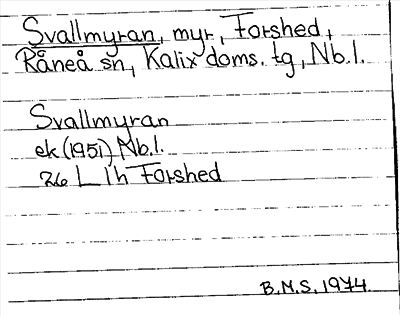 Svallmyran, myr, Forshed,
Råneå sn, Kalix doms. tg, Nb.l.
Svallmyran
ek (1951) Nb.l.
26 L 1h Forshed
B.M.S. 1974